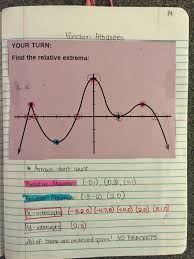 14
Function Attributes
YOUR TURN:
Find the relative extrema:
* Arrows don't count
Relative Maximum: (-5,1) (0,3) (4,1)
Relative Minimum: (-3,-2) (2,0)
X-intercepts:
(2,0)
Y-intercepts:
All of these are ordered pairs! NO BRACKETS